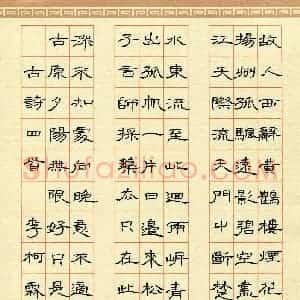 故人西辭黃鶴樓煙花
揚州孤帆遠影碧空盡
江天際流天門中斷楚
水東流至此迴兩岸青
出孤帆一片日邊來松
子言師採藥去只在此
深不知處向晚意不適
古原夕陽無限好只是
古詩四首 李柯霖